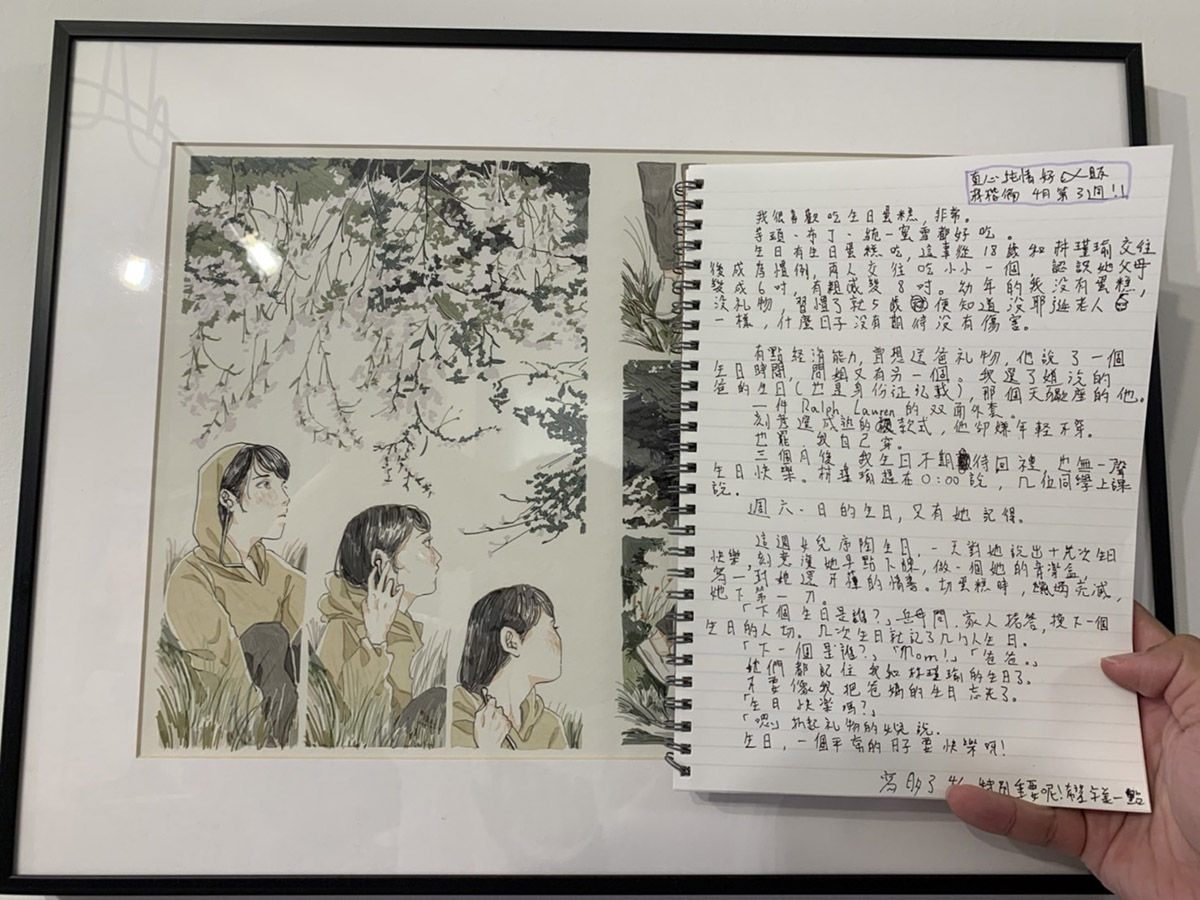 真心純情好
4月第3週!!
我很喜歡吃生日蛋糕，非常。
芋頭、布丁、統一蜜雪都好吃。
生日有生日蛋糕吃，這事從18歲和林瑾瑜交往
後成為慣例，兩人交往吃小小一個，認識她父母
變成6吋，有親戚變8吋。幼年的我沒有蛋糕，
沒礼物，習慣了就5歲便知道沒耶誕老人
一樣，什麼日子沒有期待沒有傷害。
有點經濟能力，曾想送爸礼物，他說了一個
生日時間，問姐又有另一個。我選了姐說的
爸的生日(也是身份証記載)，那個天蠍座的他。
一件 Ralph Lauren 的双面外套。
刻意選成熟的款式，他卻嫌年輕不穿。
也罷，我自己穿。
三個月後，我生日不期待回禮，也無一聲
生日快樂。林瑾瑜趕在0:00說，几位同學上課
說。
週六、日的生日，又有她記得。
這週女兒序陶生日，一天對她說出十九次生日
快樂，刻意讓她早點下線，做一個她的背背盒，
寫一封她還不懂的情書。切蛋糕時，蠟燭先滅，
她下第一刀。
「下個生日是誰？」岳母問，家人搭答，換下一個
生日的人切。几次生日就記了几个人生日。
「下一個是誰？」「Mom！」「爸爸。」
她們都記住我和林瑾瑜的生日了。
不要像我把爸媽的生日忘光了。
「生日快樂嗎？」
「嗯」拆起礼物的女兒說。
生日，一個平常的日子要快樂呀！
寫多了 特別重要呢！希望 一點